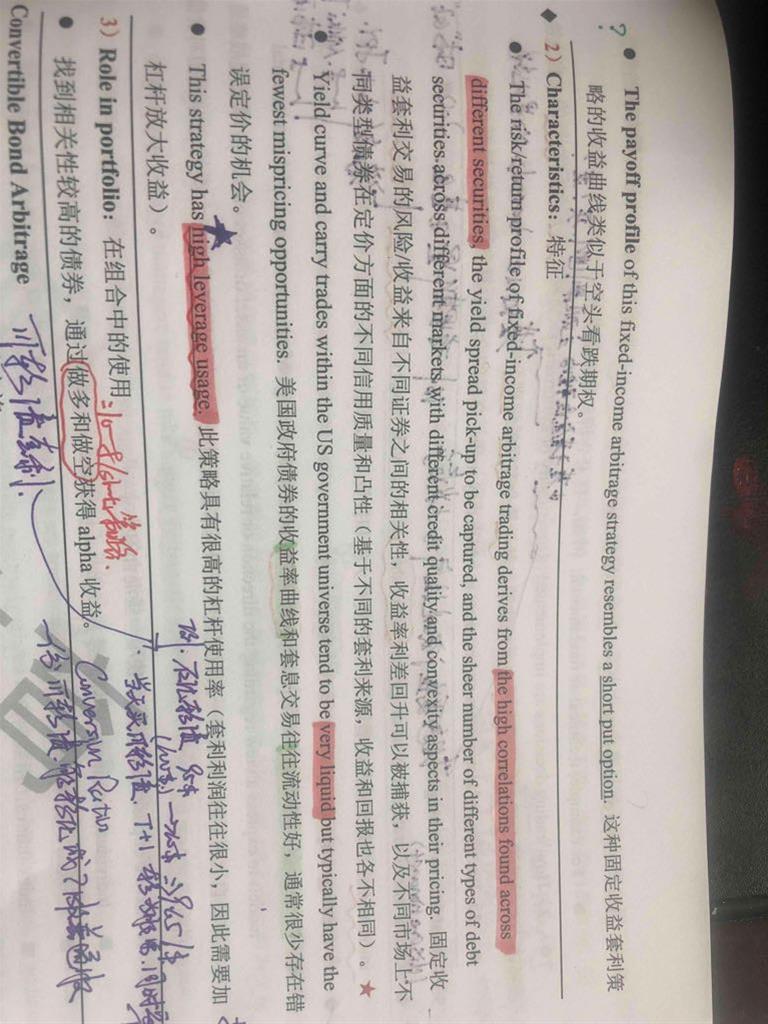 ?
● The payoff profile of this fixed-income arbitrage strategy resembles a short put option. 这种固定收益套利策
略的收益曲线类似于空头看跌期权。
◆ 2）Characteristics: 特征
● The risk/return profile of fixed-income arbitrage trading derives from the high correlations found across
different securities, the yield spread pick-up to be captured, and the sheer number of different types of debt
securities across different markets with different credit quality and convexity aspects in their pricing. 固定收
益套利交易的风险/收益来自不同证券之间的相关性，收益率利差回升可以被捕获，以及不同市场上不
同类型债券在定价方面的不同信用质量和凸性（基于不同的套利来源，收益和回报也各不相同）。★
● Yield curve and carry trades within the US government universe tend to be very liquid but typically have the
fewest mispricing opportunities. 美国政府债券的收益率曲线和套息交易往往流动性好，通常很少存在错
误定价的机会。
● This strategy has high leverage usage. 此策略具有很高的杠杆使用率（套利利润往往很小，因此需要加
杠杆放大收益）。
3）Role in portfolio: 在组合中的使用
● 找到相关性较高的债券，通过做多和做空获得 alpha 收益。
Conversion Ratio
Convertible Bond Arbitrage
可转债套利